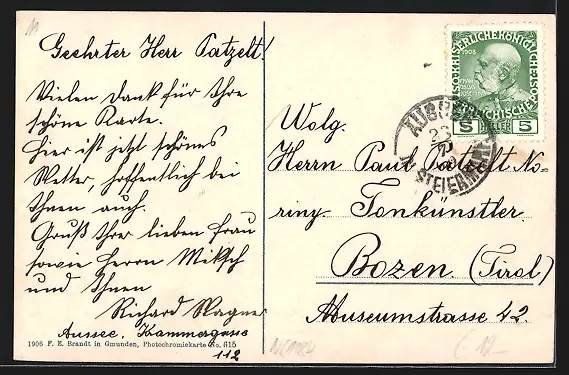 Geehrter Herr Patzelt!
Vielen Dank für Ihre
schöne Karte.
Hier ist jetzt schönes
Wetter, hoffentlich bei
Ihnen auch.
Gruß Ihrer lieben Frau
sowie Herrn Miksch
und Ihnen
Richard Wagner
Aussee, Kammergasse
112
1906 F. E. Brandt in Gmunden, Photochromiekarte No. 615
KAISERLICHE KÖNIGLICHE
1908
5 HELLER 5
IN STEIERMARK
Wolg.
Herrn Paul Patzelt No-
ring Tonkünstler
Bozen. (Tirol)
Museumstrasse 42.